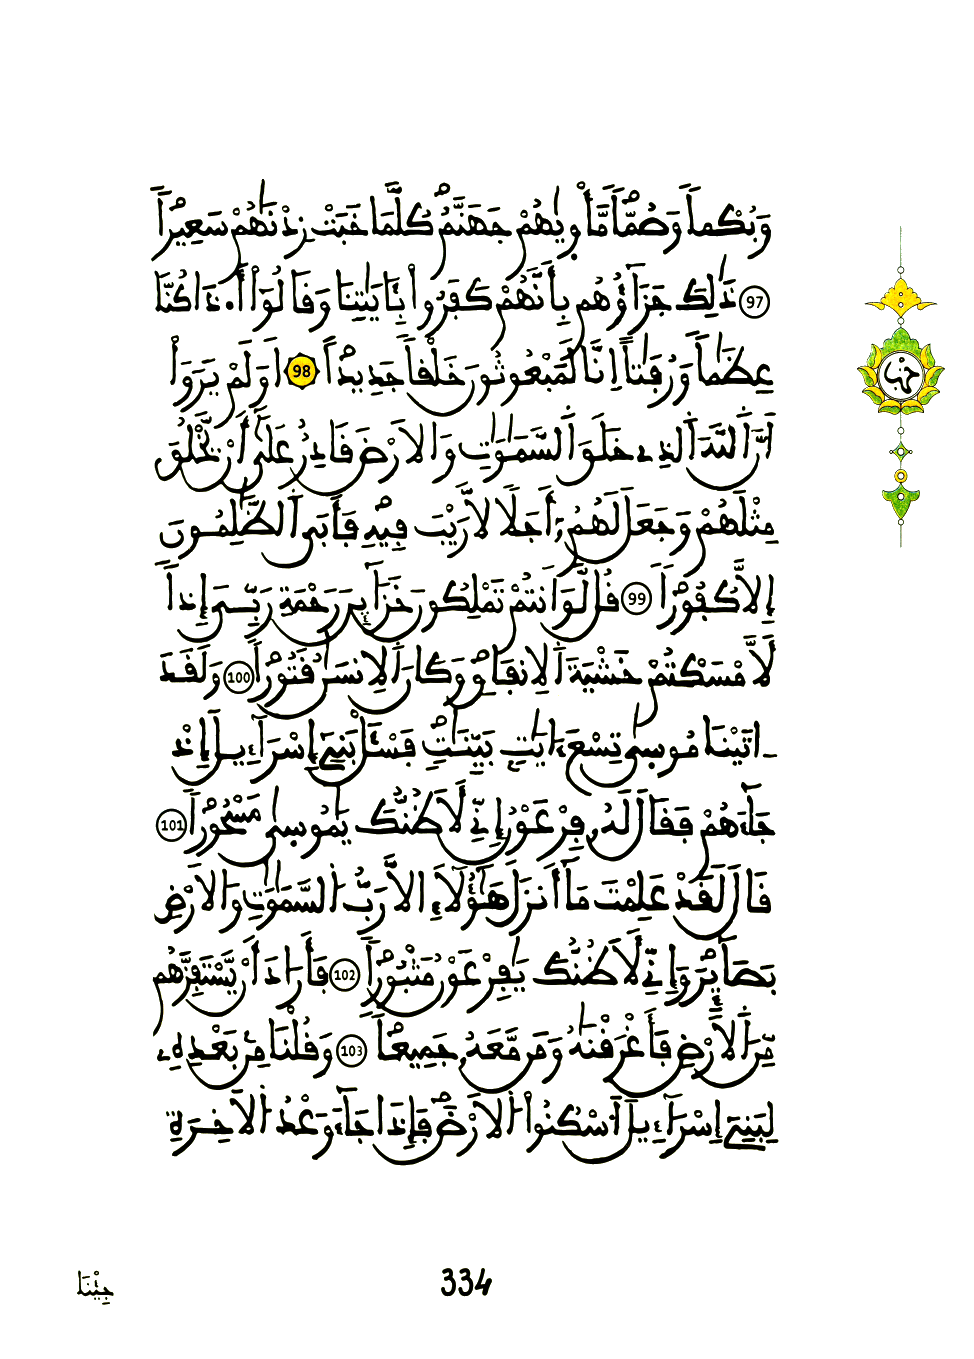 وَبُكْماً وَصُمّاً مَّأْوِيٰهُمْ جَهَنَّمُ كُلَّمَا خَبَتْ زِدْنَٰهُمْ سَعِيراً
97 ذَٰلِكَ جَزَآؤُهُم بِأَنَّهُمْ كَفَرُواْ بِـَٔايَٰتِنَا وَقَالُوٓاْ أَ.ذَا كُنَّا
عِظَٰماً وَرُفَٰتاً اِنَّا لَمَبْعُوثُونَ خَلْقاً جَدِيداً 98 اَوَلَمْ يَرَوَاْ
اَنَّ اَ۬للَّهَ اَ۬لذِے خَلَقَ اَ۬لسَّمَٰوَٰتِ وَالَارْضَ قَادِرٌ عَلَىٰٓ أَنْ يَّخْلُقَ
مِثْلَهُمْ وَجَعَلَ لَهُمُۥٓ أَجَلًا لَّا رَيْبَ فِيهِ فَأَبَى اَ۬لظَّٰلِمُونَ
إِلَّا كُفُوراً 99 قُل لَّوَ اَنتُمْ تَمْلِكُونَ خَزَآئِنَ رَحْمَةِ رَبِّىٓ إِذاً
لَّأَمْسَكْتُمْ خَشْيَةَ اَ۬لِانفَاقِ وَكَانَ اَ۬لِانسَٰنُ قَتُوراً 100 وَلَقَدَ
ـ اتَيْنَا مُوسِىٰ تِسْعَ ءَايَٰتِۢ بَيِّنَٰتٍ فَسْـَٔلْ بَنِےٓ إِسْرَآءِيلَ إِذْ
جَآءَهُمْ فَقَالَ لَهُۥ فِرْعَوْنُ إِنِّے لَأَظُنُّكَ يَٰمُوسِىٰ مَسْحُوراً 101
قَالَ لَقَدْ عَلِمْتَ مَآ أَنزَلَ هَٰٓؤُلَآءِ الَّا رَبُّ اُ۬لسَّمَٰوَٰتِ وَالَارْضِ
بَصَآئِرَ وَإِنِّے لَأَظُنُّكَ يَٰفِرْعَوْنُ مَثْبُوراً 102 فَأَرَادَ أَنْ يَّسْتَفِزَّهُم
مِّنَ اَ۬لَارْضِ فَأَغْرَقْنَٰهُ وَمَن مَّعَهُۥ جَمِيعاً 103 وَقُلْنَا مِنۢ بَعْدِهِۦ
لِبَنِےٓ إِسْرَآءِيلَ اَ۟سْكُنُواْ اُ۬لَارْضَ فَإِذَا جَآءَ وَعْدُ اُ۬لَاخِرَةِ
حزب
جِئْنَا
334